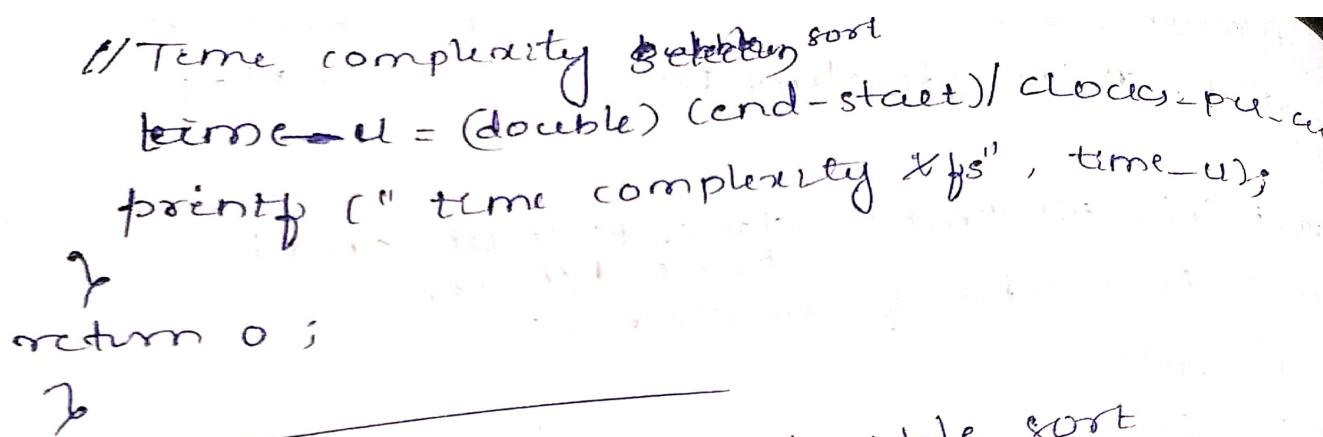 // Time complexity selection sort
time_u = (double) (end-start)/ clocks-per-
printf (" time complexity %fs", time_u);
}
return 0 ;
}
sort